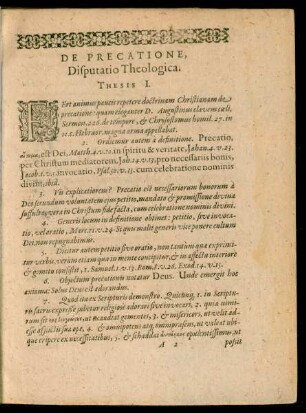 DE PRECATIONE,
Disputatio Theologica.
THESIS I.
FErt animus paucis repetere doctrinam Christianam de
precatione: quam eleganter D. Augustinus clavem cœli,
Sermon. 226. de tempore, & Chrysostomus homil. 27. in
12. c. ad Hebræos, magna arma appellabat.
2. Ordimur autem à definitione. Precatio,
est Dei, Matth. 4. v. 10. in spiritu & veritate, Johan. 4. v. 23.
per Christum mediatorem, Joh. 14. v. 13. pro necessariis bonis,
Jacob. 1. v. 5. invocatio, Psal. 50. v. 15. cum celebratione nominis
divini,
3. Vis explicatiorem? Precatio est necessariorum bonorum à
Deo secundum voluntatem ejus petitio, mandato & promissione divina
suffulta, & in Christum fide facta, cum celebratione nominis divini.
4. Generis locum in definitione obtinet: petitio, sive invoca-
tio, vel oratio, Marc. 11. v. 24. Si quis malit generis vice ponere cultum
Dei, non repugnabimus.
5. Dicitur autem petitio sive oratio, non tantùm quæ exprimi-
tur verbis, verùm etiam quæ in mente concipitur, & in affectu interiore
& gemitu consistit, 1. Samuel. 1. v. 13. Rom. 8. v. 26. Exod. 14. v. 15.
6. Objectum precationis vocatur Deus. Unde emergit hoc
axioma: Solus Deus est adorandus.
7. Quod ita ex Scripturis demonstro. Quicunque 1. in Scriptu-
ris sacris expresse jubetur religiosè adorari sive invocari, 2. quia nimi-
rum sit ut audiat gementes, & 3. misericors, ut velit ad-
esse afflictis sua ope, 4. & omnipotens ut valeat ubi-
que eripere ex necessitatibus, 5. & opulentissimus, ut
A 2 possit